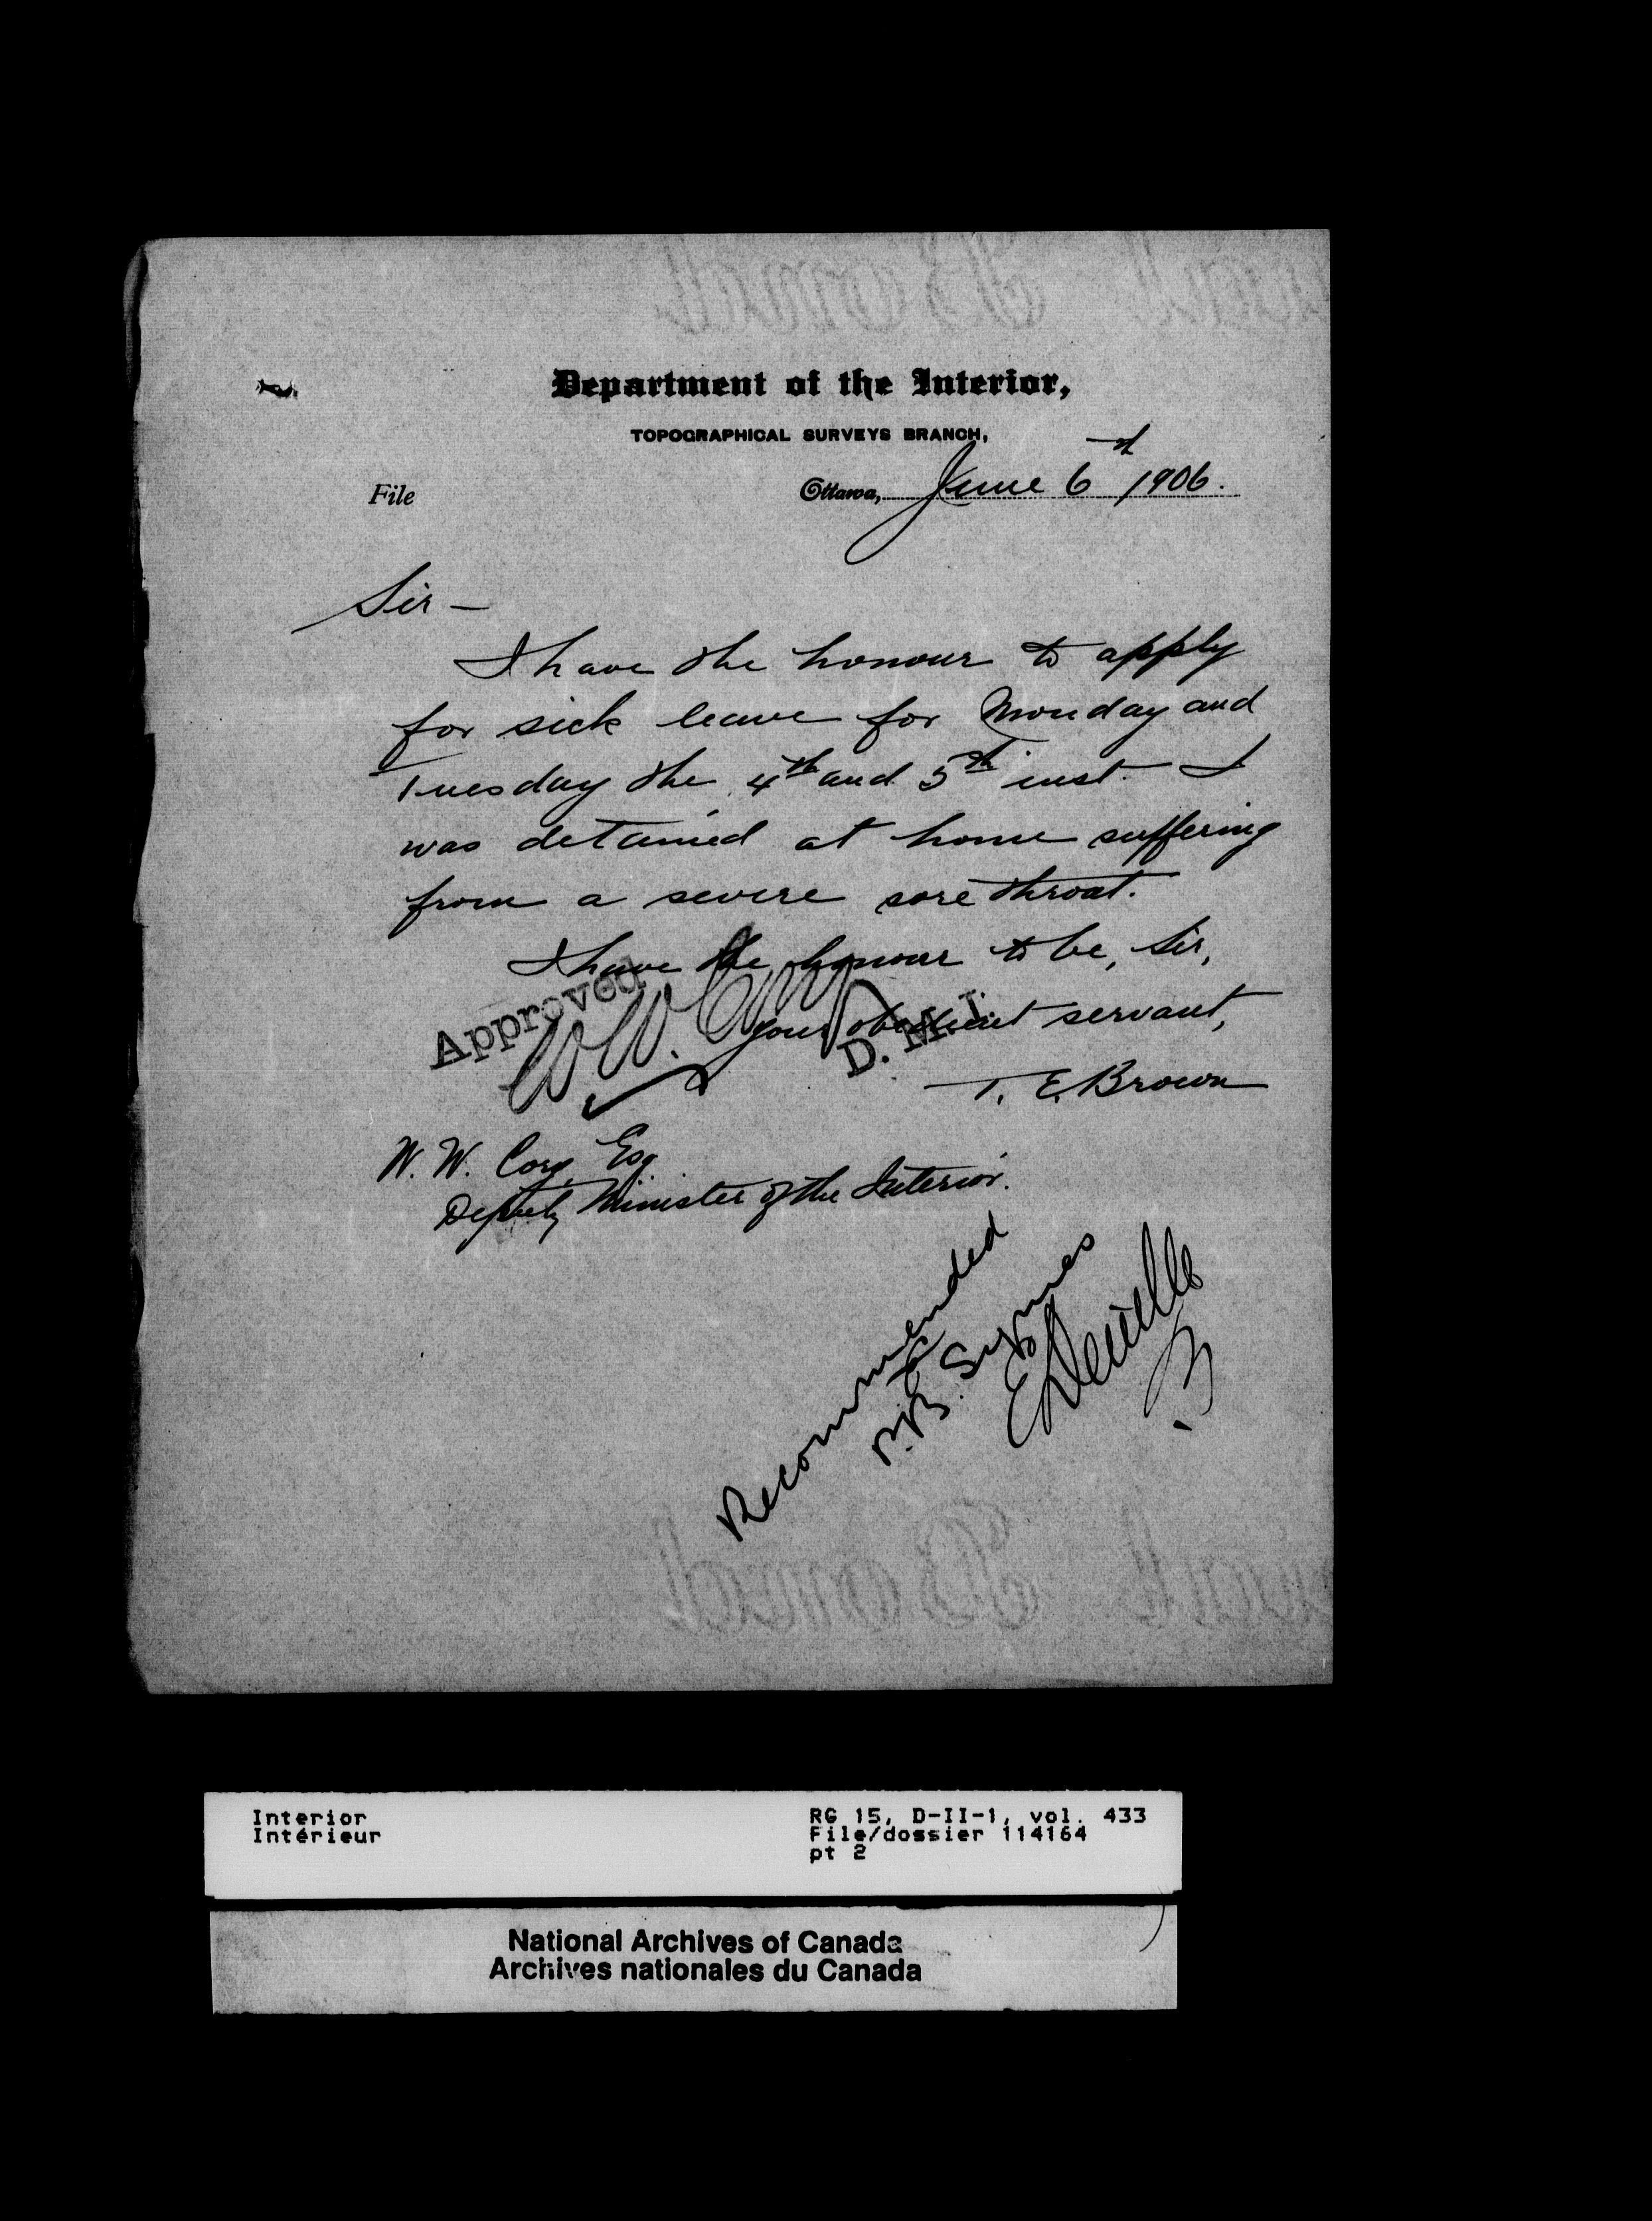 Department of the Interior,
TOPOGRAPHICAL SURVEYS BRANCH,
File
Ottawa, June 6th 1906.
Sir —
I have the honour to apply
for sick leave for Monday and
Tuesday the 4th and 5th inst. I
was detained at home suffering
from a severe sore throat.
I have the honour to be, Sir,
Your obedient servant,
T. E. Brown
Approved
W. W. Cory
D. M. I.
W. W. Cory Esq
Deputy Minister of the Interior.
Recommended
P. B. Symes
E Deville
Interior
Intérieur
RG 15, D-II-1, vol. 433
File/dossier 114164
pt 2
National Archives of Canada
Archives nationales du Canada